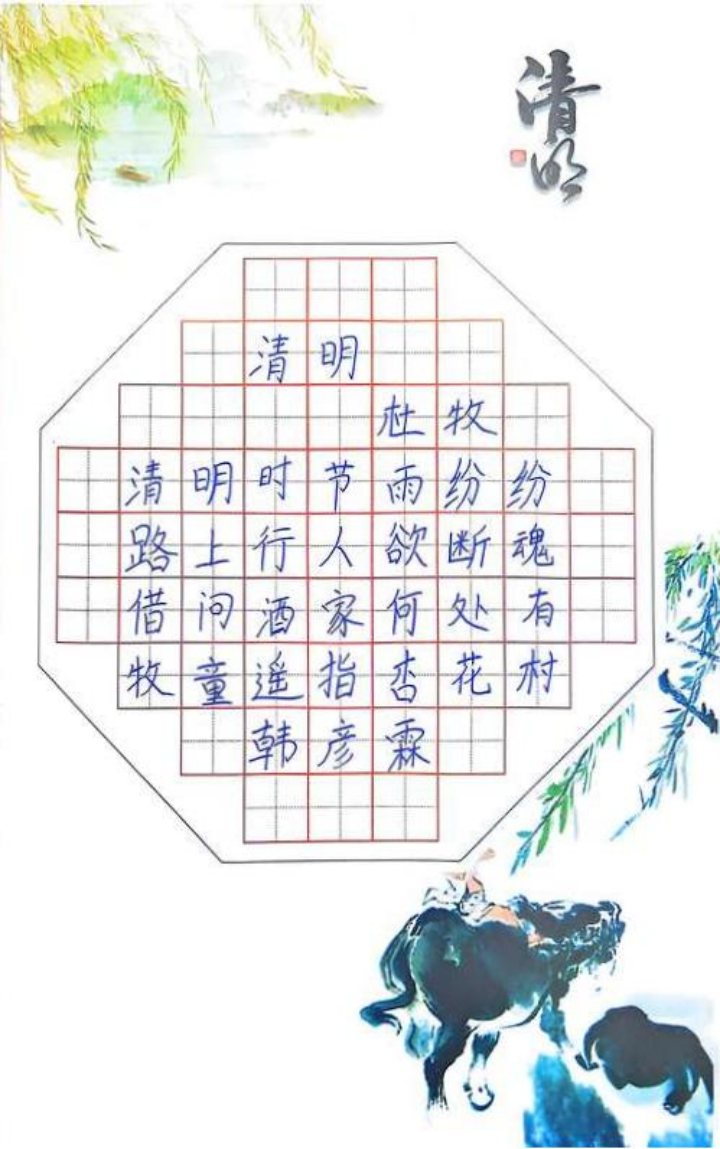 清明
清明
杜牧
清明时节雨纷纷
路上行人欲断魂
借问酒家何处有
牧童遥指杏花村
韩彦霖